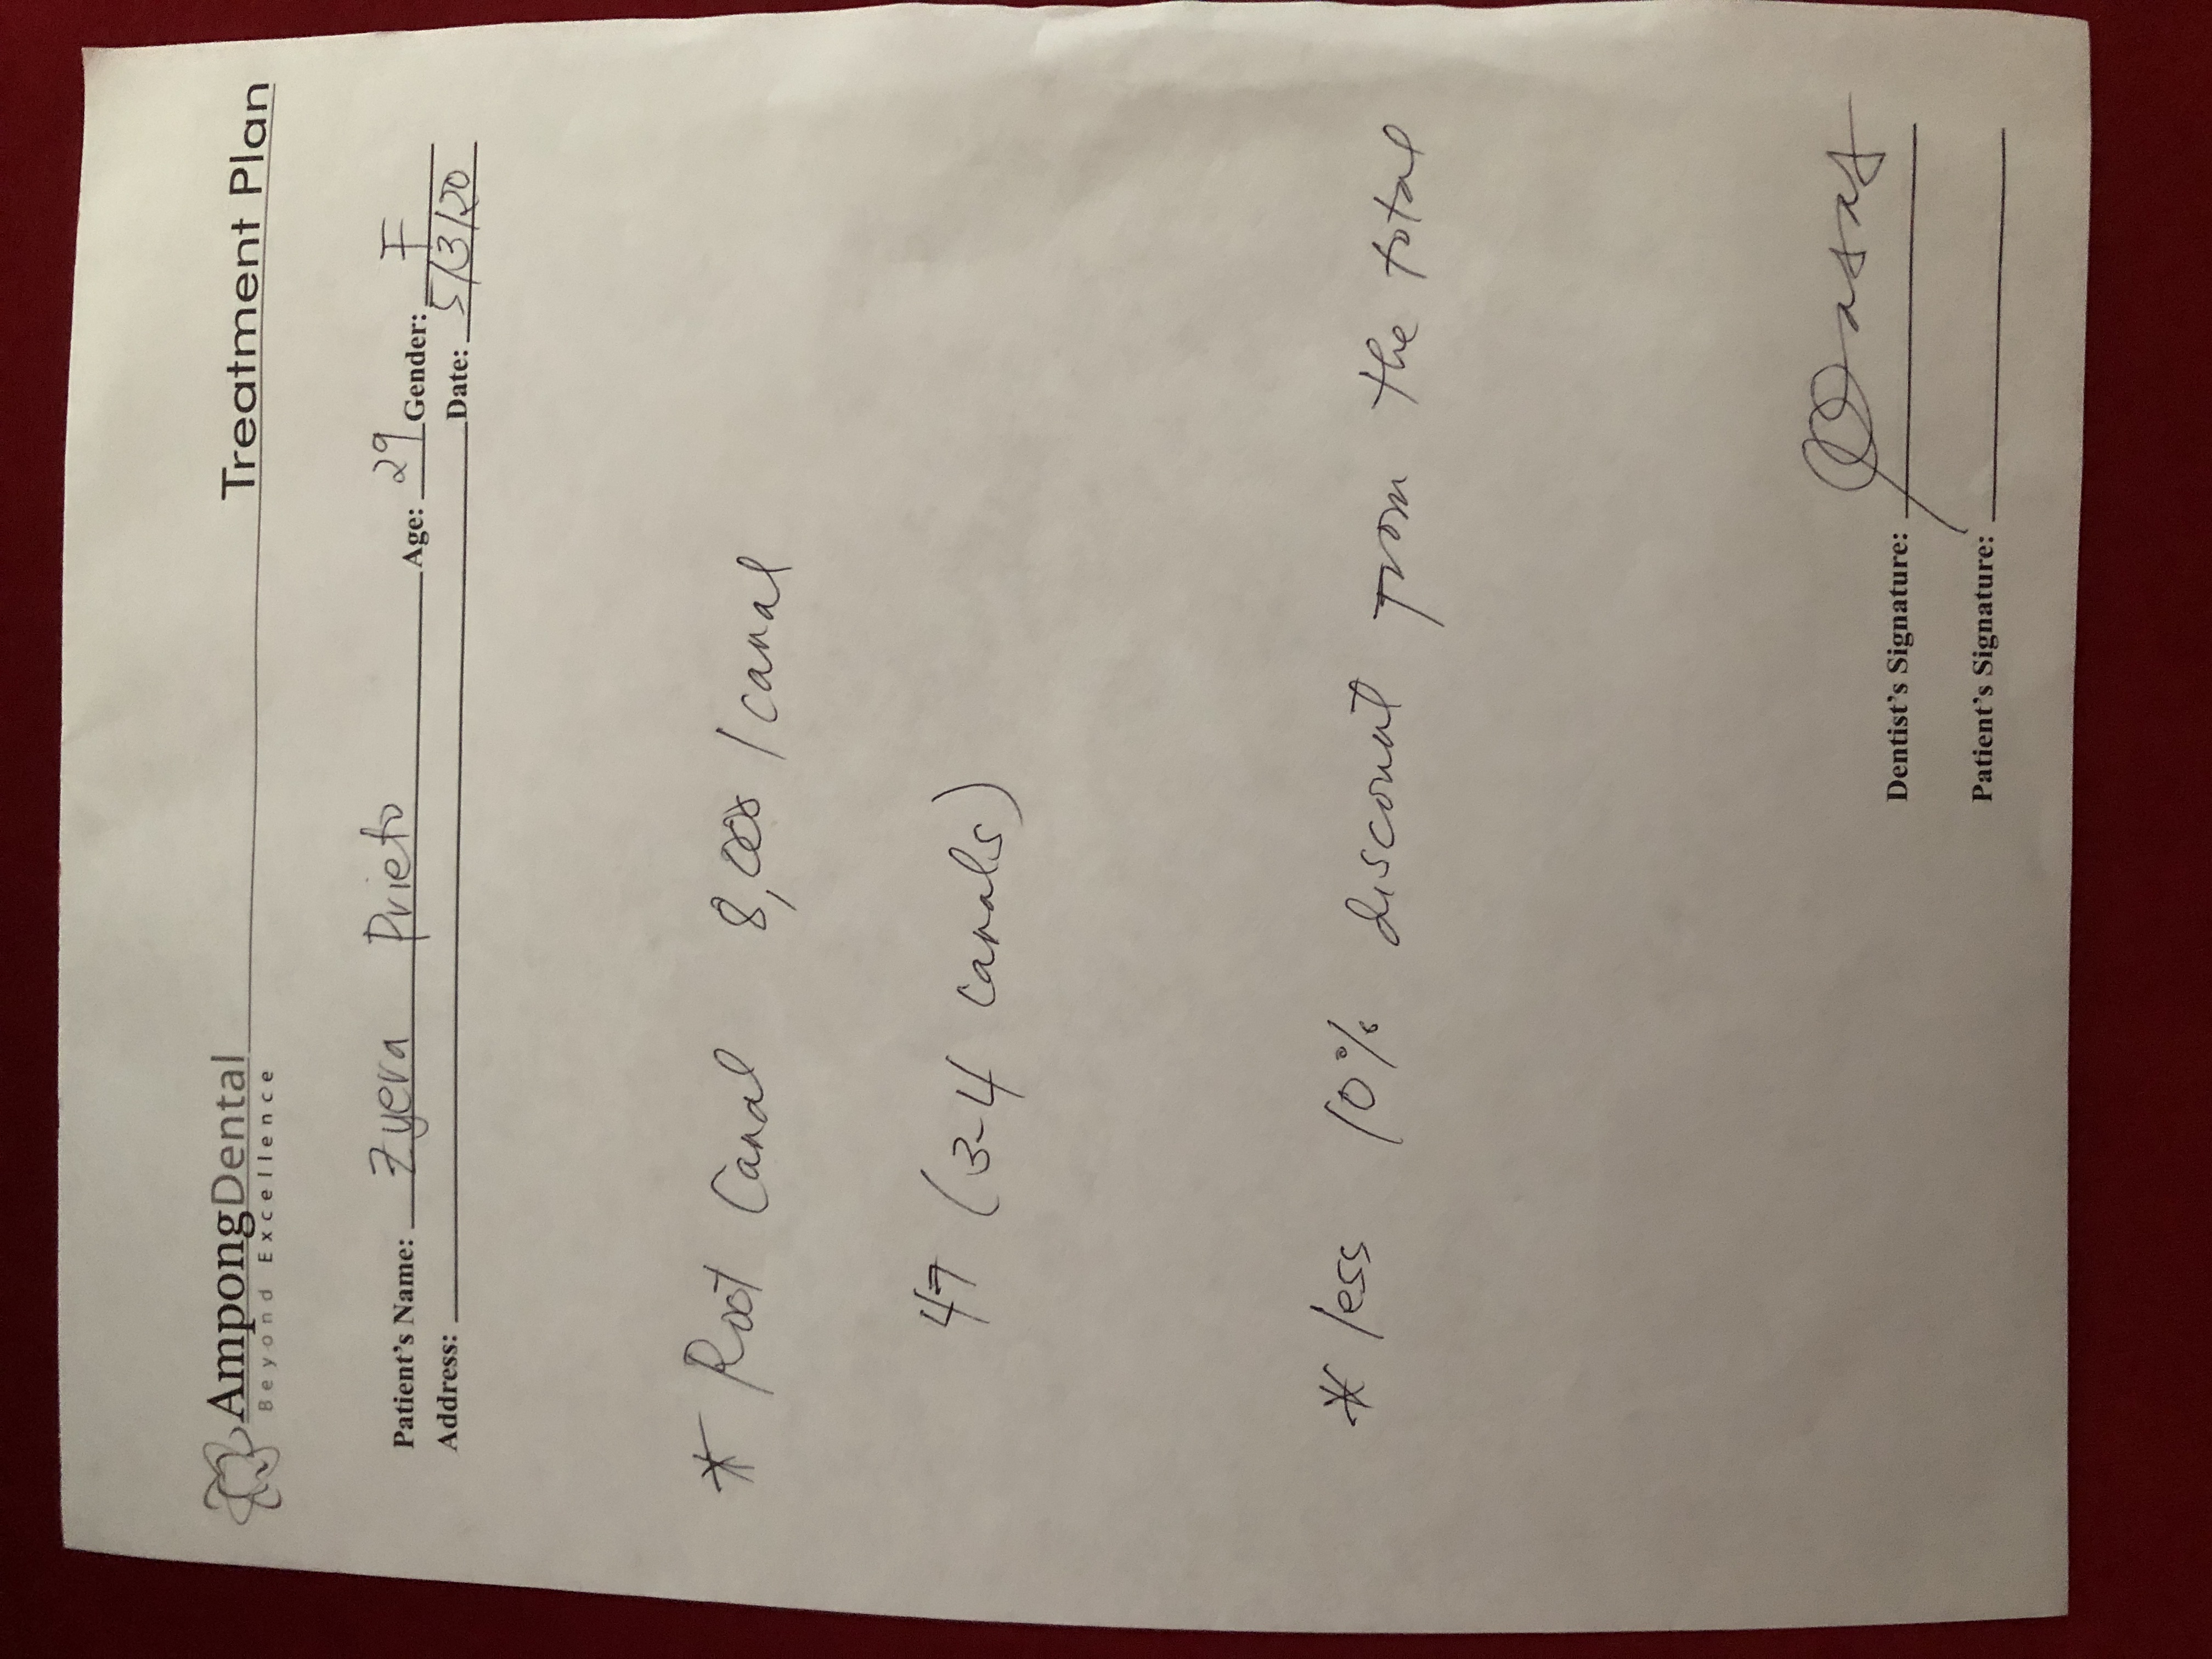 AmpongDental
Beyond Excellence
Treatment Plan
Patient's Name: Zyera Prieto Age: 29 Gender: F
Address: Date: 5/3/20
* Root Canal 8,000 / canal
47 (3-4 canals)
* less 10% discount from the total
Dentist's Signature:
Patient's Signature: